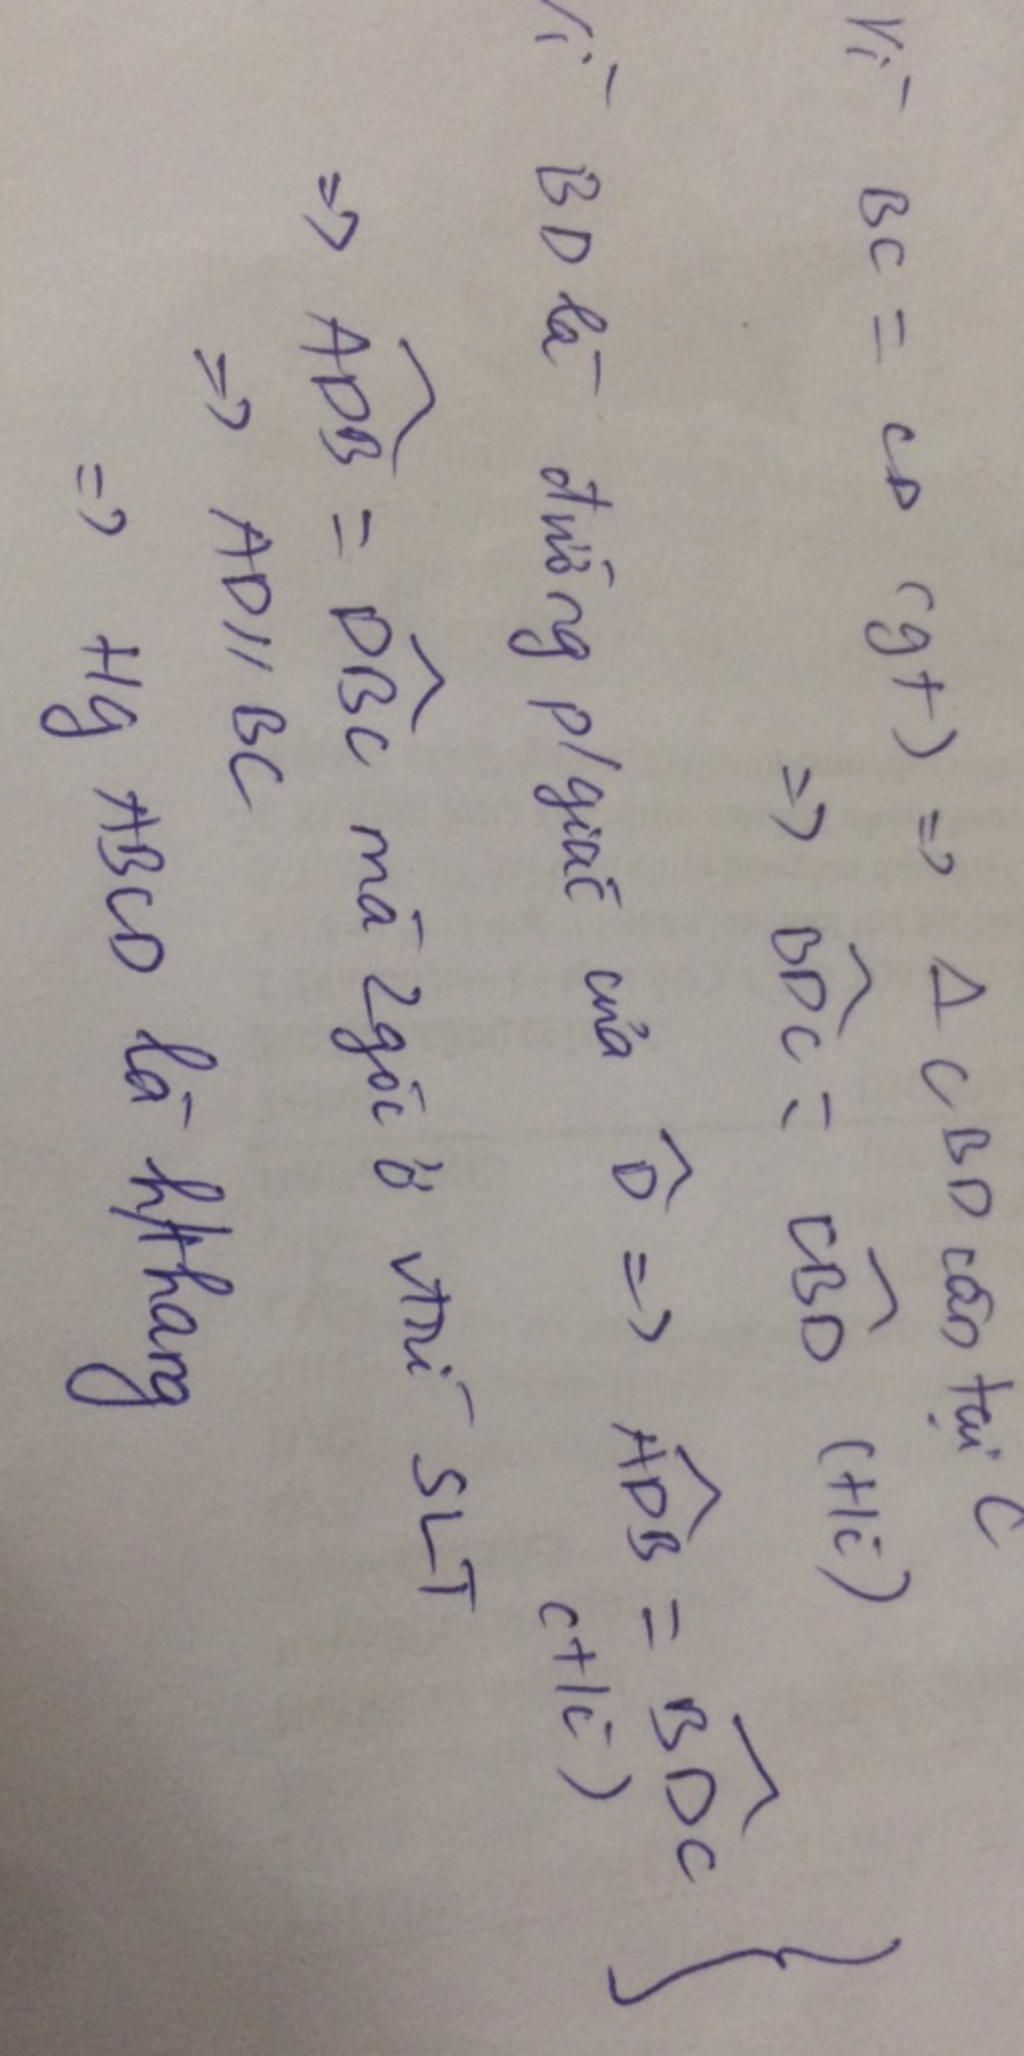 Vì BC = CD (gt) => Δ CBD cân tại C
=> \widehat{BDC} = \widehat{CBD} (t/c)
Vì BD là đường p/giác của \widehat{D} => \widehat{ADB} = \widehat{BDC} }
(t/c)
=> \widehat{ADB} = \widehat{DBC} mà 2 góc ở vtrí SLT
=> AD // BC
=> Hg ABCD là h/thang